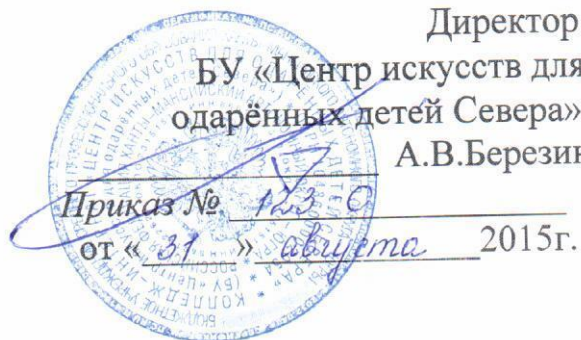 Директор
БУ «Центр искусств для
одарённых детей Севера»
А.В.Березин
Приказ № 123 О
от «31» августа 2015г.